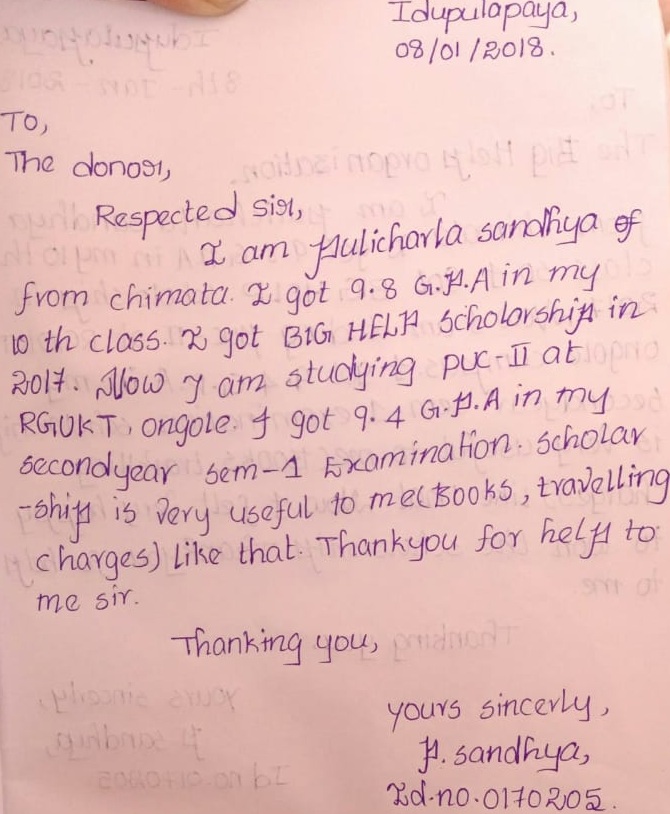 Idupulapaya,
08/01/2018.
To,
The donor,
Respected sir,
I am Pulicharla sandhya of
from chimata. I got 9.8 G.P.A in my
10 th class. I got BIG HELP scholorship in
2017. Now I am studying PUC-II at
RGUKT, ongole. I got 9.4 G.P.A in my
secondyear sem-1 Examination. scholar
-ship is very useful to me(Books, travelling
charges) like that. Thankyou for help to
me sir.
Thanking you,
yours sincerly,
P. sandhya,
Id.no.0170205.